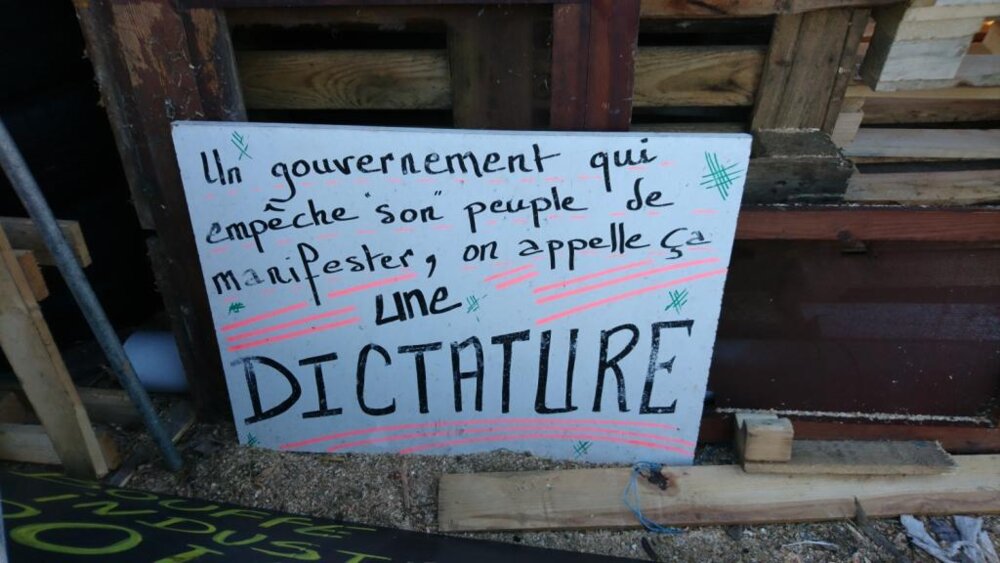 Un gouvernement qui
empêche "son" peuple de
manifester, on appelle ça
une
DICTATURE
L'INDUST